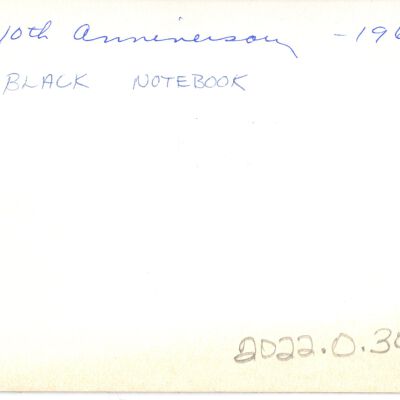 10th Anniversary - 196
BLACK NOTEBOOK
2022.0.30